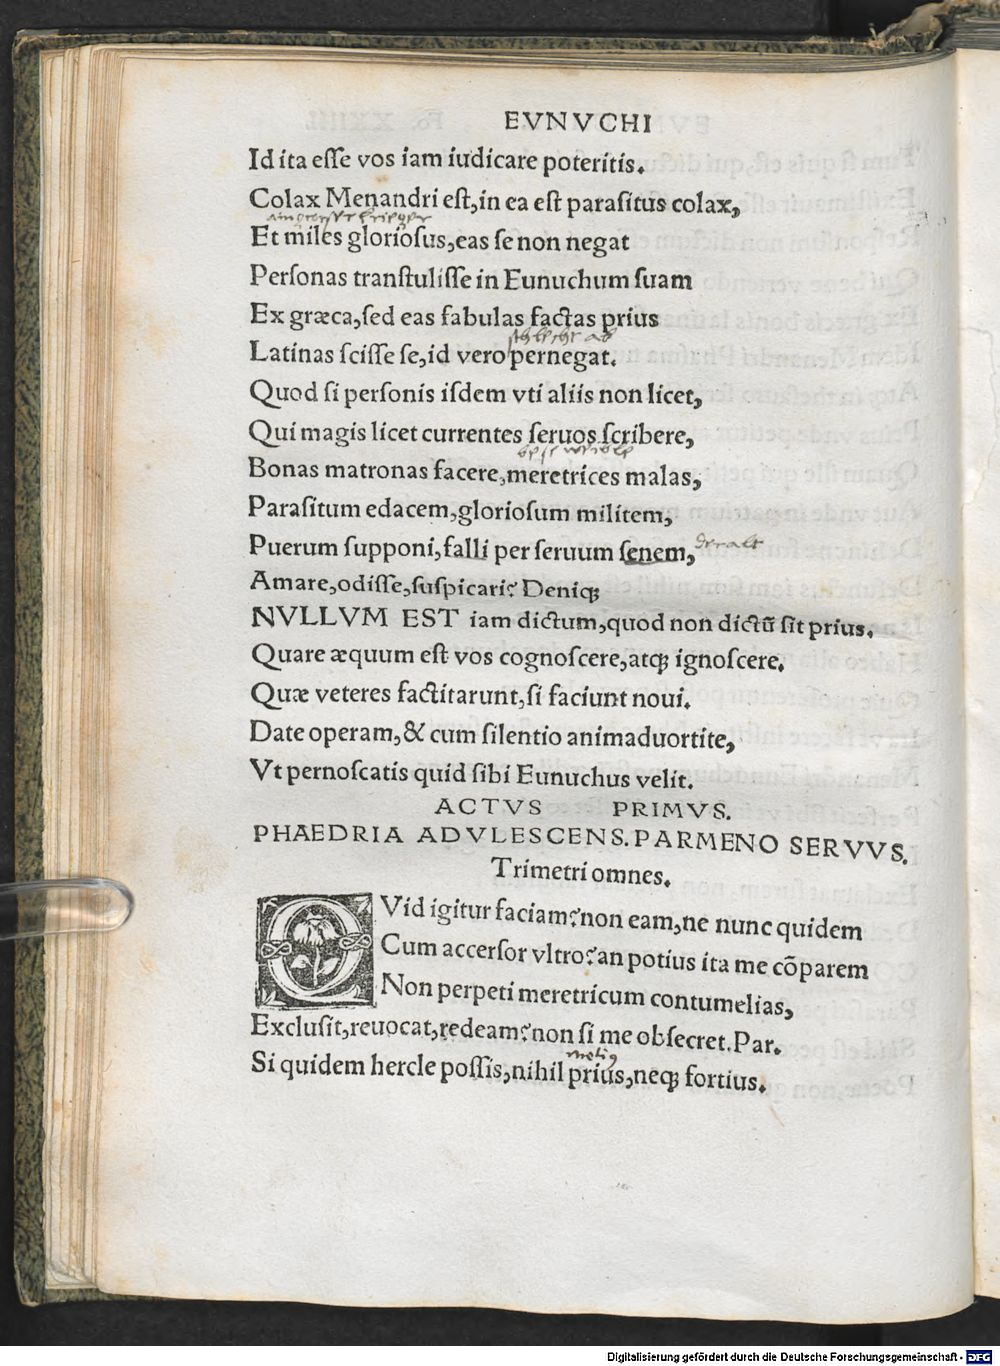 EVNVCHI
Id ita esse vos iam iudicare poteritis.
Colax Menandri est, in ea est parasitus colax,
Et miles gloriosus, eas se non negat
Personas transtulisse in Eunuchum suam
Ex græca, sed eas fabulas factas prius
schlecht ab
Latinas scisse se, id vero pernegat.
Quod si personis isdem vti aliis non licet,
Qui magis licet currentes seruos scribere,
bese weible
Bonas matronas facere, meretrices malas,
Parasitum edacem, gloriosum militem,
Puerum supponi, falli per seruum senem, der alt
Amare, odisse, suspicari? Deniqꝫ
NVLLVM EST iam dictum, quod non dictū sit prius.
Quare æquum est vos cognoscere, atqꝫ ignoscere.
Quæ veteres factitarunt, si faciunt noui.
Date operam, & cum silentio animaduortite,
Vt pernoscatis quid sibi Eunuchus velit.
ACTVS PRIMVS.
PHAEDRIA ADVLESCENS. PARMENO SERVVS.
Trimetri omnes.
QVid igitur faciam? non eam, ne nunc quidem
Cum accersor vltro? an potius ita me cōparem
Non perpeti meretricum contumelias,
Exclusit, reuocat, redeam? non si me obsecret. Par.
Si quidem hercle possis, nihil prius, neqꝫ fortius.
Digitalisierung gefördert durch die Deutsche Forschungsgemeinschaft - DFG